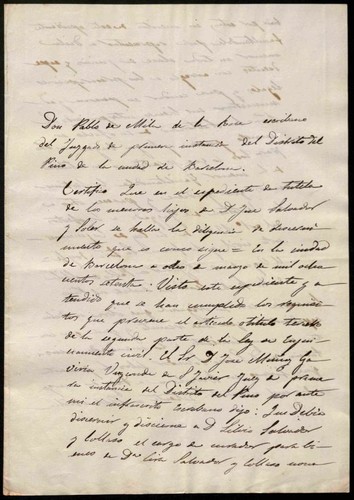 Don Pablo de Mila de la Roca escribano
del Juzgado de primera instancia del Distrito del
Pino de la ciudad de Barcelona.
Certifico Que en el espediente de tutela
de los menores hijos de D. José Salvador
y Soler se halla la diligencia de discerni
miento que es como sigue = En la ciudad
de Barcelona a ocho de marzo de mil ocho
cientos ochenta. Visto este espediente y a
tendido que se han cumplido los requisi
tos que previene el articulo titulo
de la segunda parte de la Ley de Enjui
ciamiento civil. El Sr. D. José Muñoz Ga
viria Vizconde de S. Javier Juez de primera
instancia del Distrito del Pino por ante
mi el infrascrito Escribano dijo: Que Debia
discernir y discierne a D. Silvio Salvador
y Collaso el cargo de curador para bie
nes de Dña Salvador y Collaso meno